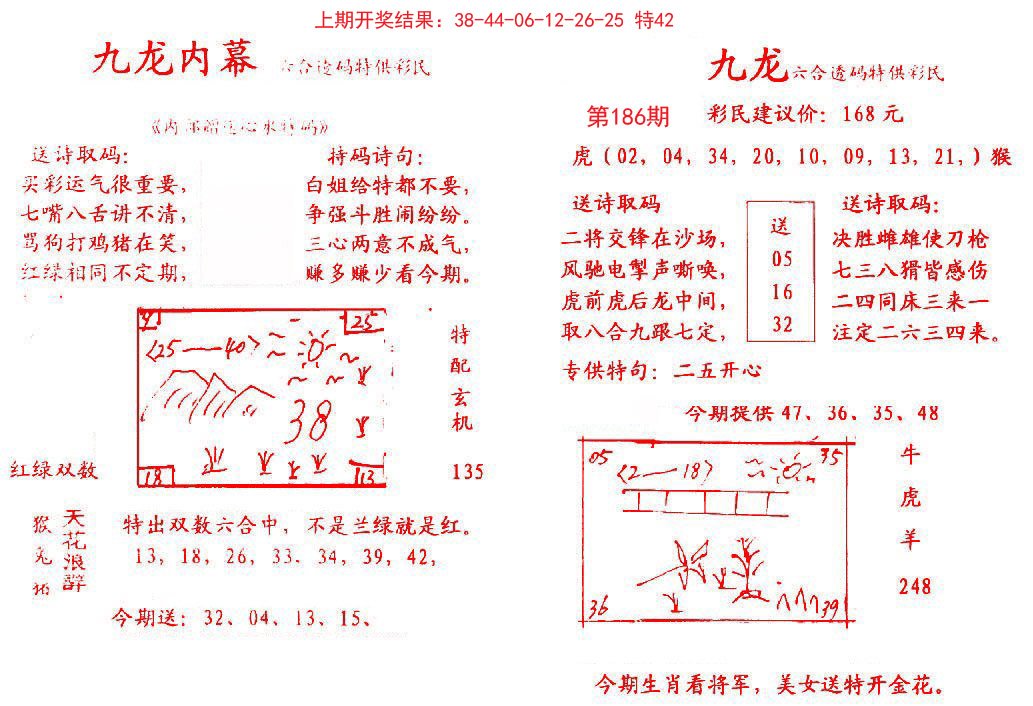 上期开奖结果：38-44-06-12-26-25 特42
九龙内幕
六合透码特供彩民
送诗取码：
买彩运气很重要，
七嘴八舌讲不清，
骂狗打鸡猪在笑，
红绿相同不定期，
特码诗句：
白姐给特都不要，
争强斗胜闹纷纷。
三心两意不成气，
赚多赚少看今期。
25
〈25——40〉
38
18
13
特配玄机
135
红绿双数
天花浪辟
猴兔
特出双数六合中，不是兰绿就是红。
13，18，26，33．34，39，42，
今期送：32、04、13、15、
九龙六合透码特供彩民
第186期
彩民建议价：168元
虎（02，04，34，20，10，09，13，21，）猴
送诗取码
二将交锋在沙场，
风驰电掣声嘶唤，
虎前虎后龙中间，
取八合九跟七定，
送
05
16
32
送诗取码：
决胜雌雄使刀枪
七三八猾皆感伤
二四同床三来一
注定二六三四来。
专供特句：二五开心
今期提供47、36、35、48
05
35
〈2——18〉
36
39
牛
虎
羊
248
今期生肖看将军，美女送特开金花。